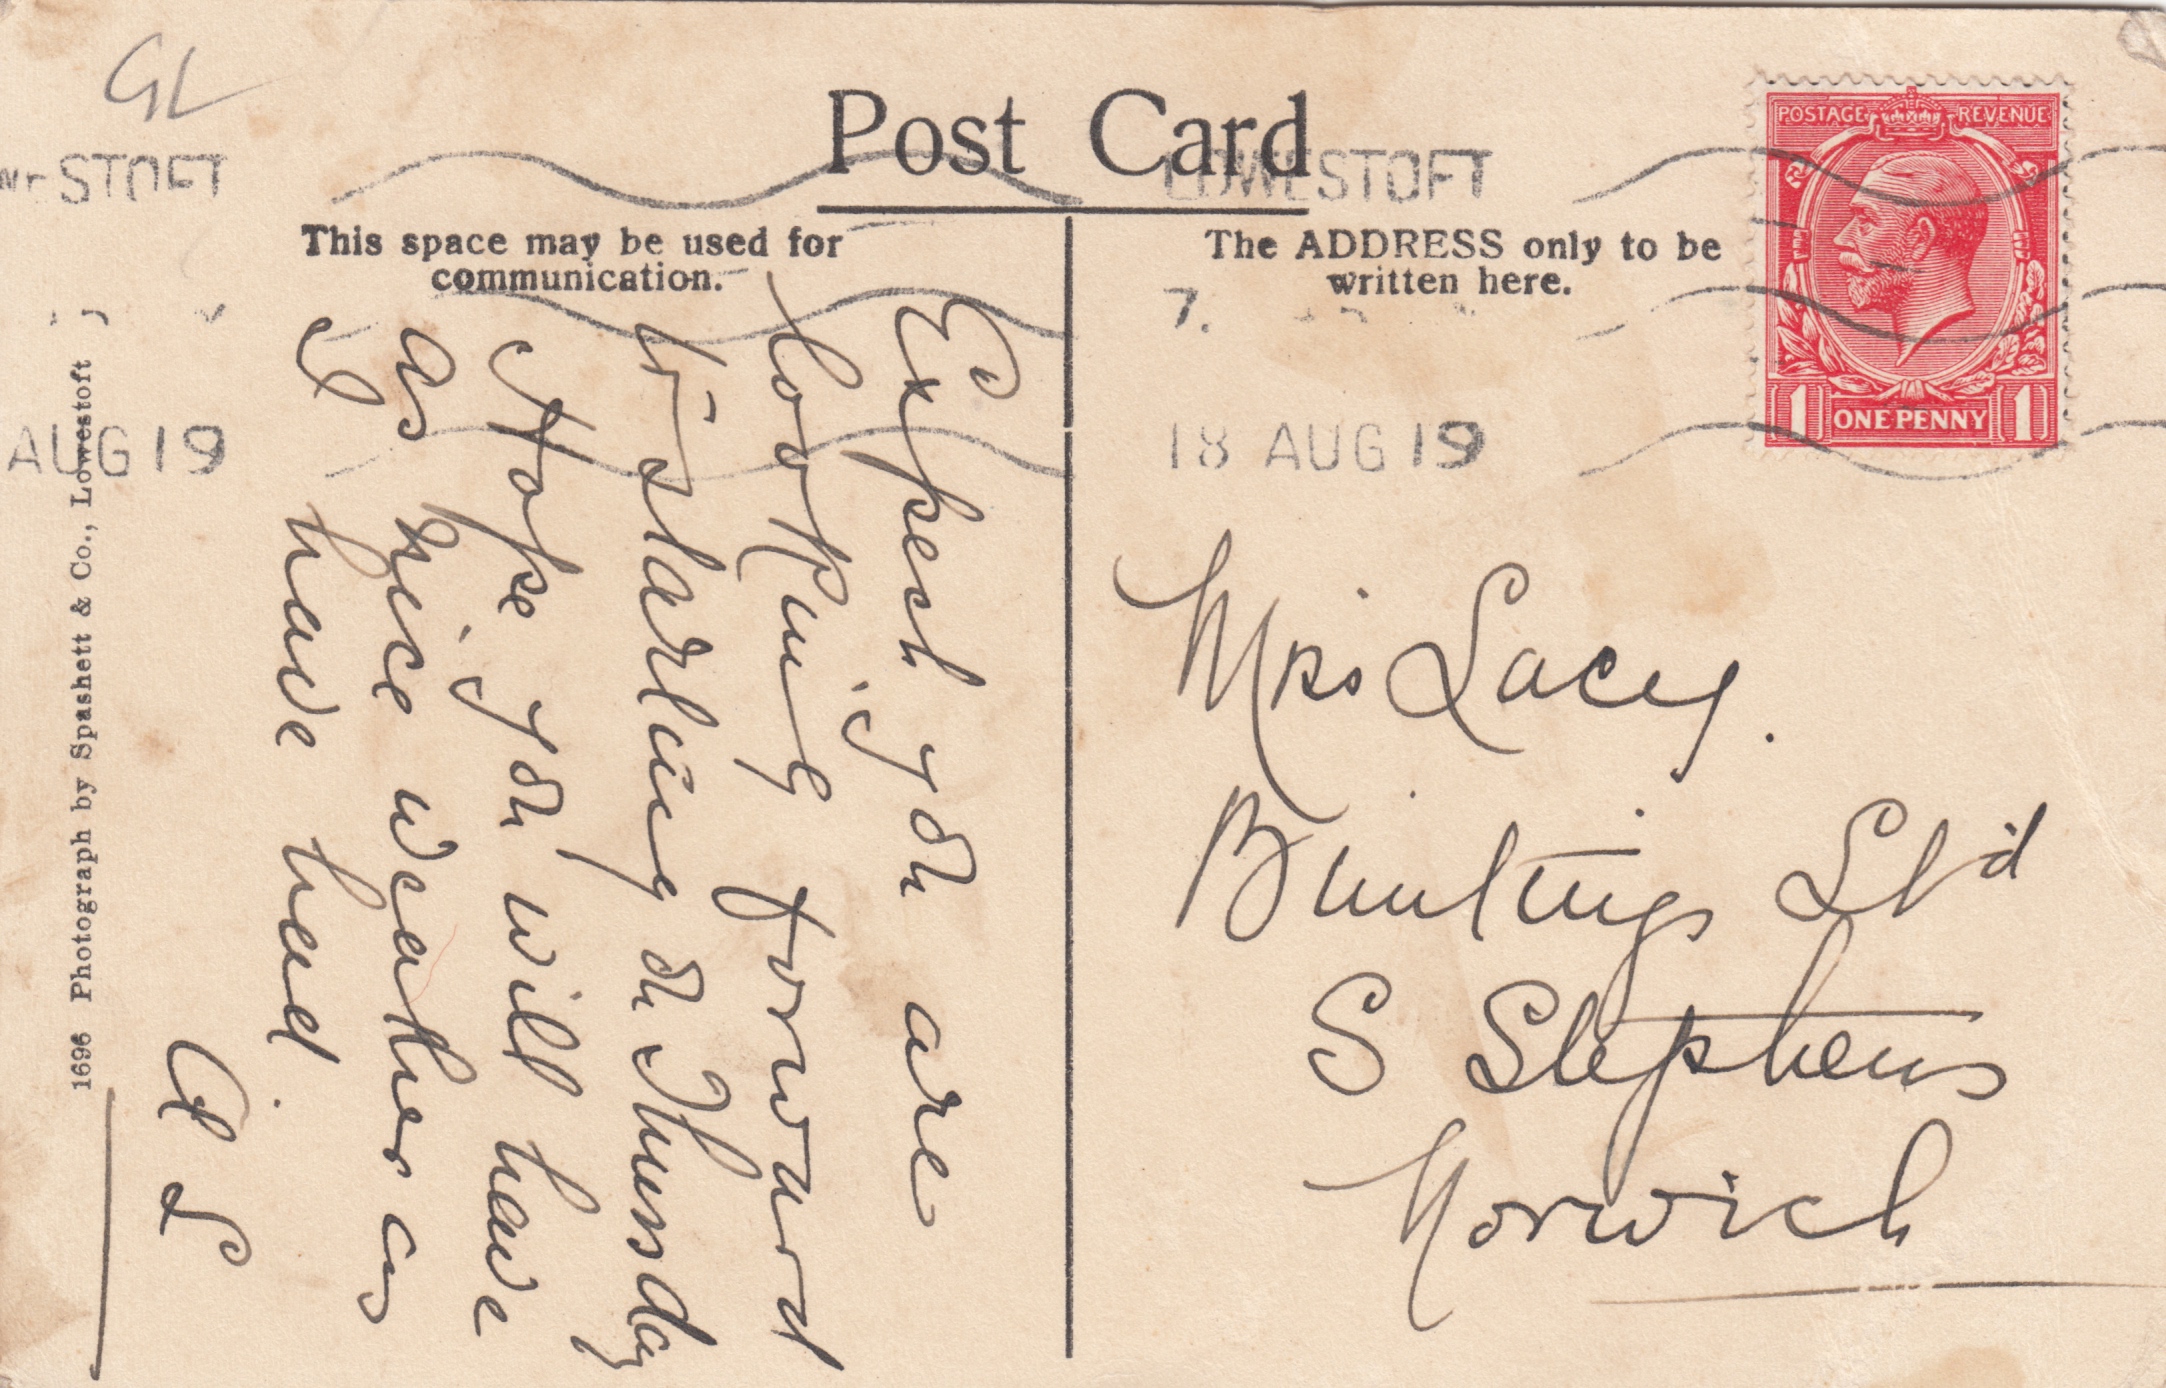 GL
Post Card
This space may be used for
communication.
The ADDRESS only to be
written here.
POSTAGE REVENUE
1 ONE PENNY 1
STOFT
LOWESTOFT
7.
AUG 19
18 AUG 19
Expect you are
looking forward
to starling on Thursday
Hope you will have
as nice weather as
I have had
G L
Mrs Lacey.
Buntings Ltd
S Stephens
Norwich
1696 Photograph by Spashett & Co., Lowestoft